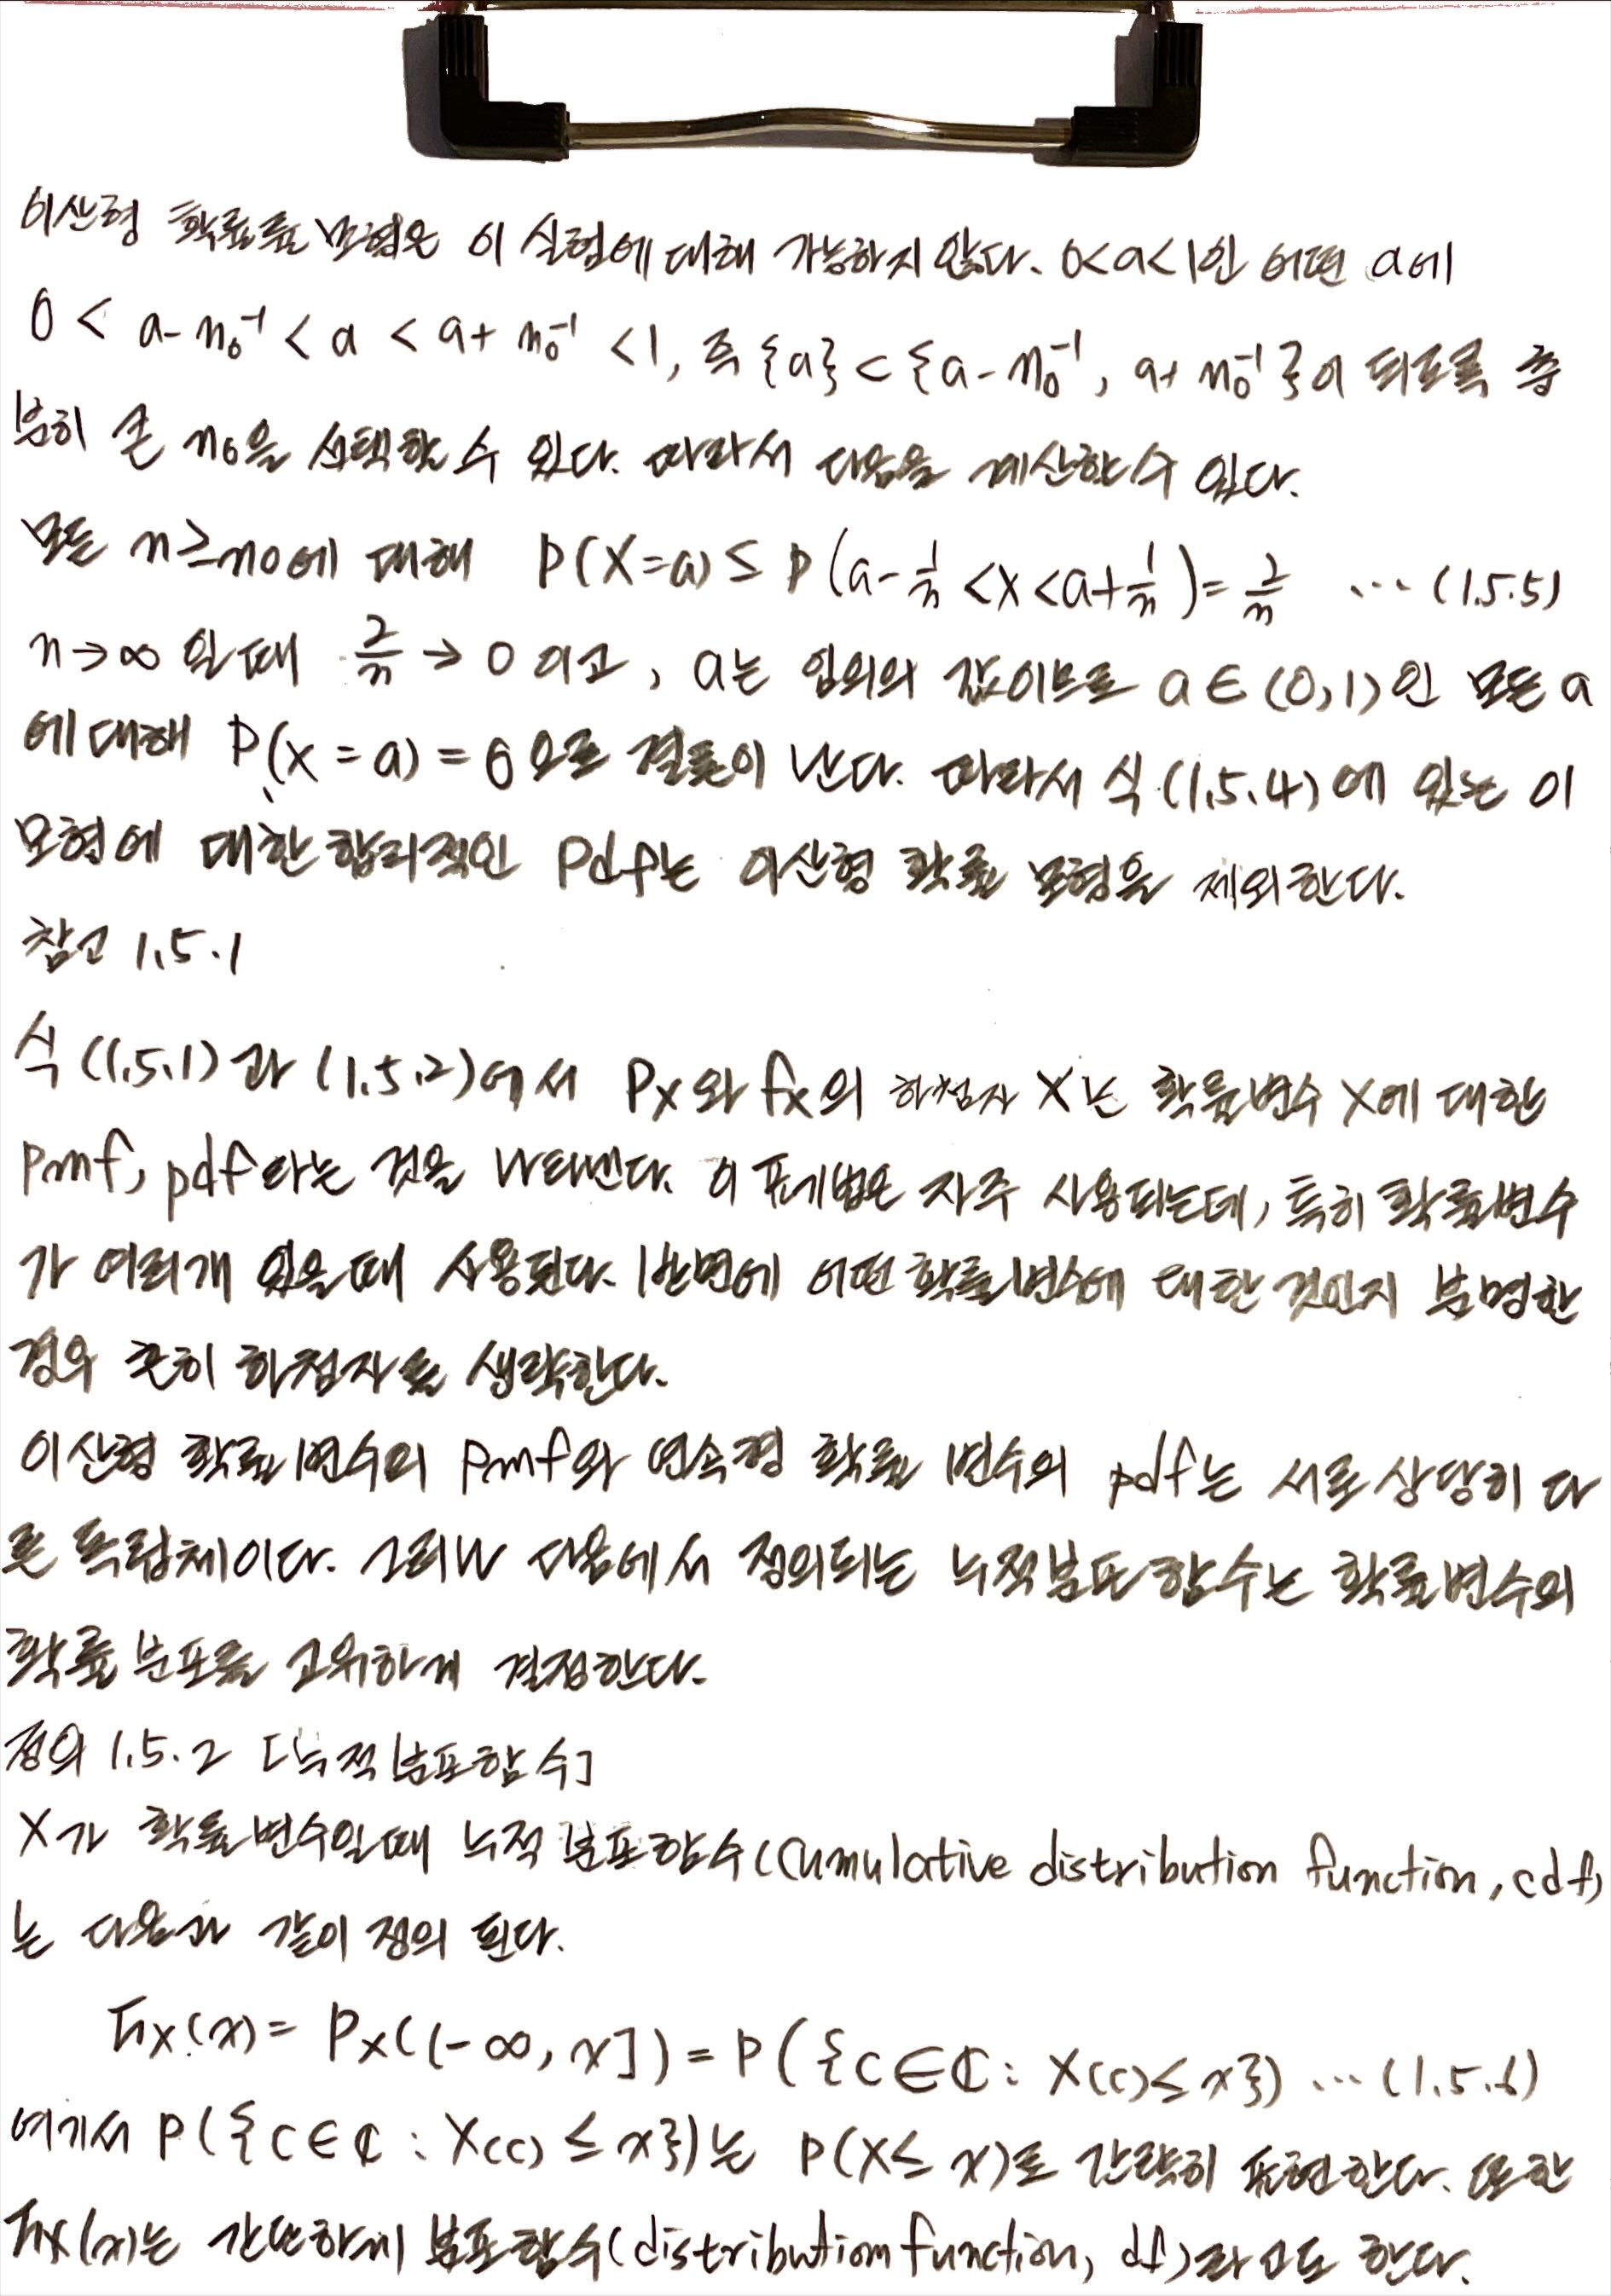 이산형 확률률 모형은 이 실험에 대해 가능하지 않다. 0<a<1인 어떤 a에
0 < a-n₀⁻¹ < a < a+n₀⁻¹ <1, 즉 {a} ⊂ {a-n₀⁻¹, a+n₀⁻¹}이 되도록 충
분히 큰 n₀을 선택할 수 있다. 따라서 다음을 계산할 수 있다.
모든 n≥n0에 대해 P(X=a) ≤ P(a-1/n <X<a+1/n)=2/n ... (1.5.5)
n→∞ 일 때 2/n → 0 이고, a는 임의의 값이므로 a∈(0,1)인 모든 a
에 대해 P(x=a)=0으로 결론이 난다. 따라서 식 (1.5.4)에 있는 이
모형에 대한 합리적인 Pdf는 이산형 확률 모형을 제외한다.
참고 1.5.1
식 (1.5.1)과 (1.5.2)에서 Px와 fx의 하첨자 X는 확률변수 X에 대한
Pmf, pdf라는 것을 나타낸다. 이 표기법은 자주 사용되는데, 특히 확률변수
가 여러개 있을 때 사용된다. 반면에 어떤 확률변수에 대한 것인지 분명한
경우 흔히 하첨자를 생략한다.
이산형 확률변수의 Pmf와 연속형 확률 변수의 pdf는 서로 상당히 다
른 독립체이다. 그러나 다음에서 정의되는 누적분포함수는 확률변수의
확률분포를 고유하게 결정한다.
정의 1.5.2 [누적분포함수]
X가 확률변수일때 누적분포함수(Cumulative distribution function, cdf)
는 다음과 같이 정의 된다.
Fx(x)= Px((-∞, x])=P({c∈ℂ: X(c)≤x}) ... (1.5.6)
여기서 P({c∈ℂ: X(c)≤x})는 P(X≤x)로 간략히 표현한다. 또한
Fx(x)는 간단하게 분포함수(distribution function, df)라고도 한다.